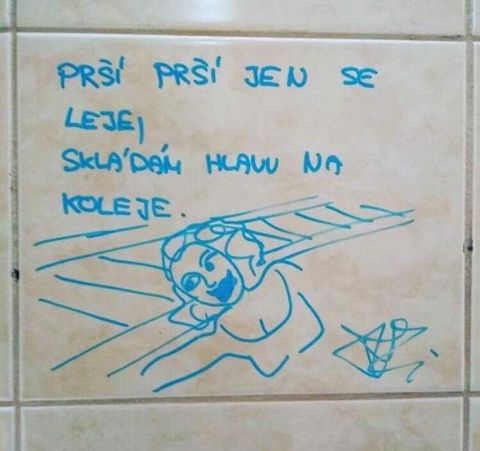 PRŠÍ PRŠÍ JEN SE
LEJE,
SKLÁDÁM HLAVU NA
KOLEJE.